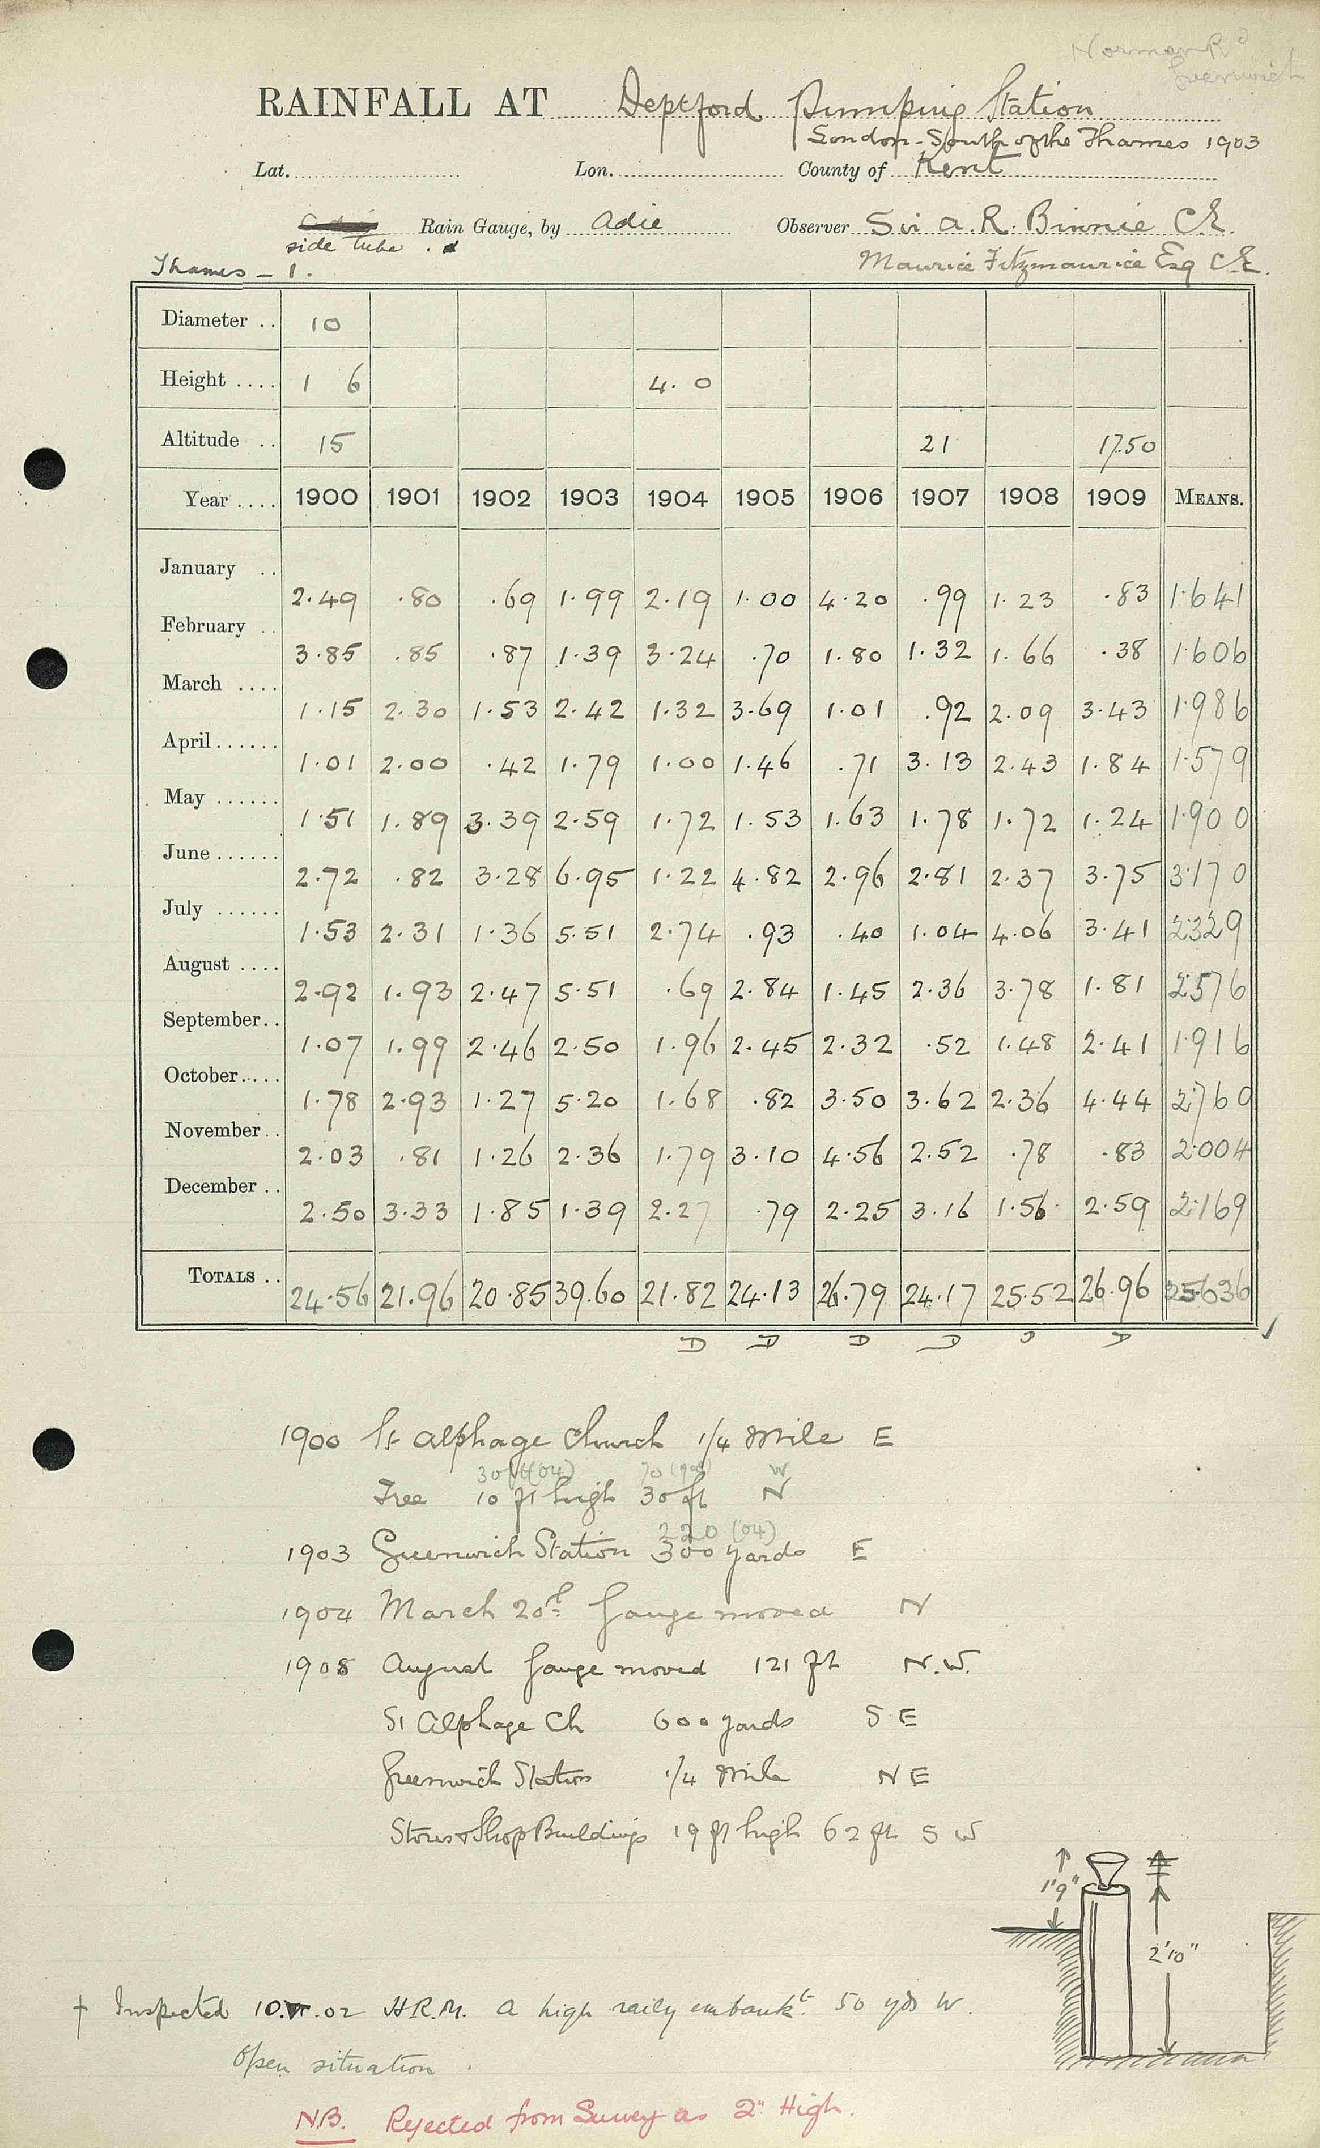 Norman Rd
Greenwich
RAINFALL AT Deptford Pumping Station
London - South of the Thames 1903
Lat. Lon. County of Kent
Rain Gauge, by Adie Observer Sir A. R. Binnie CE
side tube Maurice Fitzmaurice Esq CE.
Thames - 1.
Diameter .. 10
Height .... 1 6 4. 0
Altitude .. 15 21 17.50
Year .... 1900 1901 1902 1903 1904 1905 1906 1907 1908 1909 MEANS.
January .. 2.49 .80 .69 1.99 2.19 1.00 4.20 .99 1.23 .83 1.641
February .. 3.85 .85 .87 1.39 3.24 .70 1.80 1.32 1.66 .38 1.606
March .... 1.15 2.30 1.53 2.42 1.32 3.69 1.01 .92 2.09 3.43 1.986
April ...... 1.01 2.00 .42 1.79 1.00 1.46 .71 3.13 2.43 1.84 1.579
May ...... 1.51 1.89 3.39 2.59 1.72 1.53 1.63 1.78 1.72 1.24 1.900
June ...... 2.72 .82 3.28 6.95 1.22 4.82 2.96 2.81 2.37 3.75 3.170
July ...... 1.53 2.31 1.36 5.51 2.74 .93 .40 1.04 4.06 3.41 2.329
August .... 2.92 1.93 2.47 5.51 .69 2.84 1.45 2.36 3.78 1.81 2.576
September.. 1.07 1.99 2.46 2.50 1.96 2.45 2.32 .52 1.48 2.41 1.916
October.... 1.78 2.93 1.27 5.20 1.68 .82 3.50 3.62 2.36 4.44 2.760
November.. 2.03 .81 1.26 2.36 1.79 3.10 4.56 2.52 .78 .83 2.004
December .. 2.50 3.33 1.85 1.39 2.27 .79 2.25 3.16 1.56 2.59 2.169
TOTALS .. 24.56 21.96 20.85 39.60 21.82 24.13 26.79 24.17 25.52 26.96 25.636
D D D D D D
1900 St Alphage Church 1/4 Mile E
30ft (04) W
Tree 10 ft high 30 ft N
220 (04)
1903 Greenwich Station 300 yards E
1904 March 20th Gauge moved N
1908 August Gauge moved 121 ft N.W.
St Alphage Ch 600 yards S E
Greenwich Station 1/4 Mile N E
Stores & Shop Buildings 19 ft high 62 ft S W
1'9"
2'10"
† Inspected 10.V.02 H.R.M. A high raily embankt. 50 yds W.
Open situation.
NB. Rejected from Survey as 2" High.